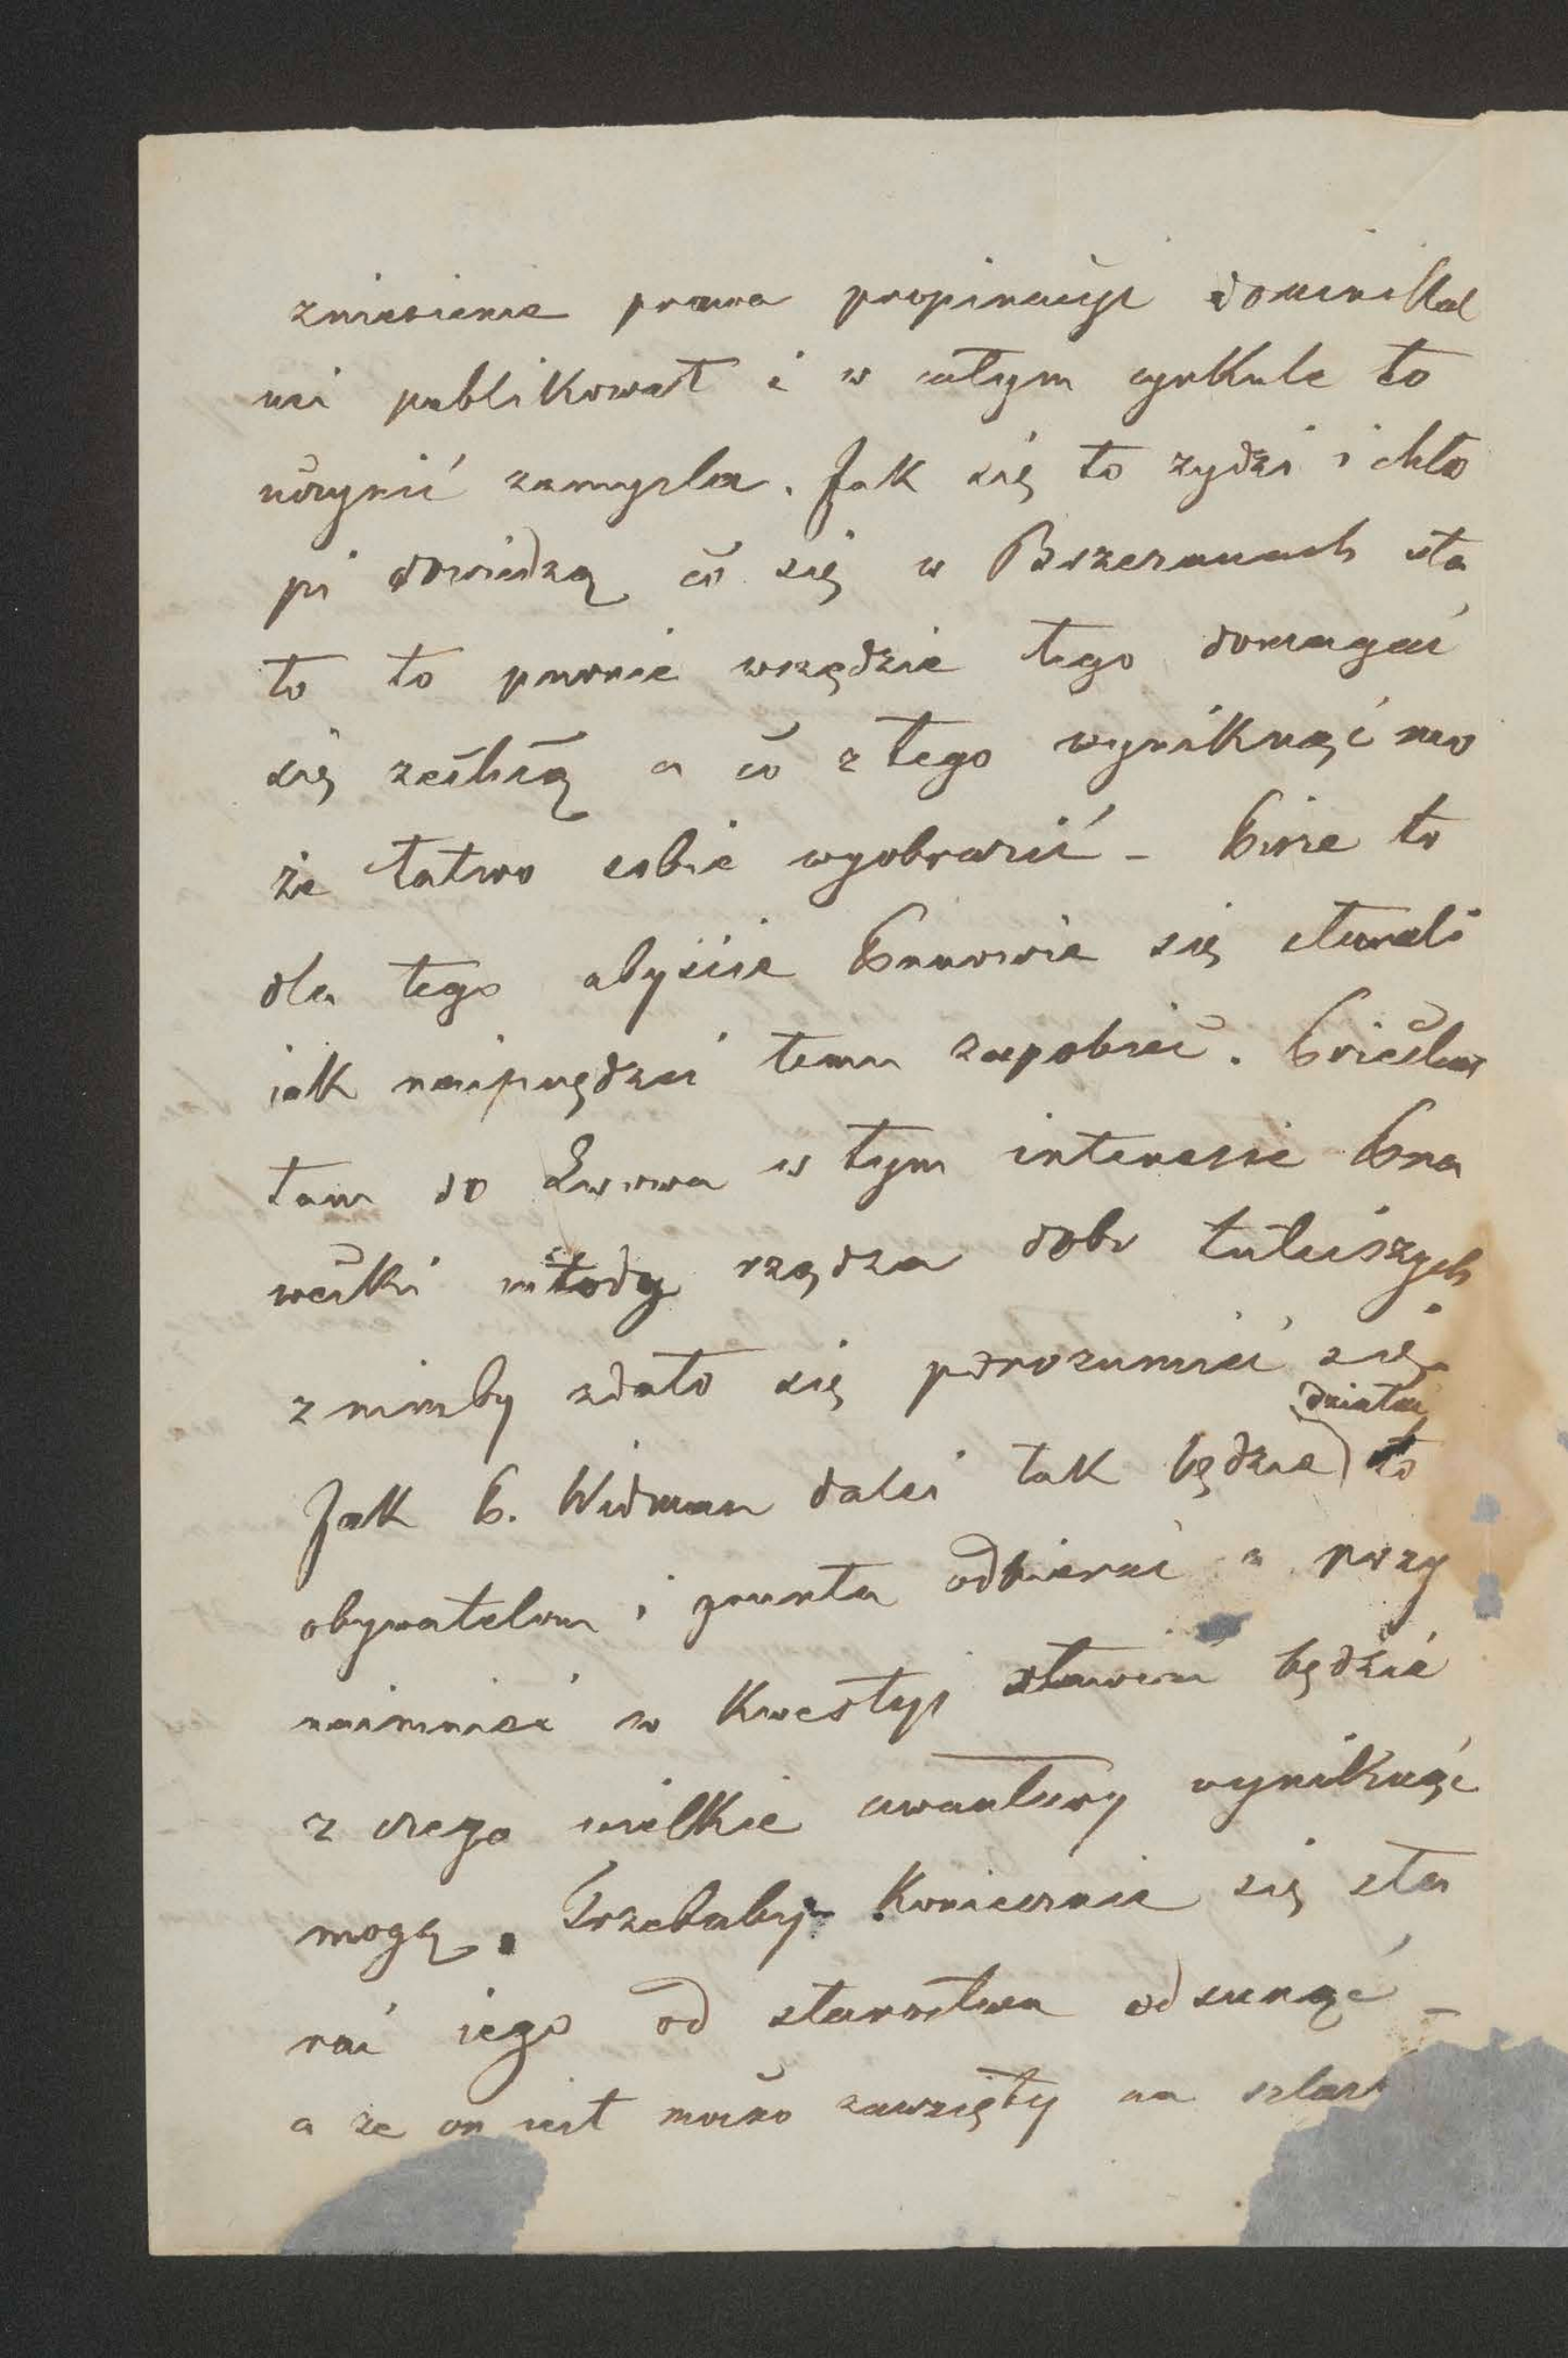 zniesienie prawa propinacyi dominikal
ni publikował i w całym cyrkule to
uczynić zamysla. Jak się to zydzi i chło
pi dowiedzą co się w Brzezanach sta
ło to pewnie wszędzie tego domagać
się zechcą a co z tego wyniknąć mo
że łatwo sobie wyobrazić - Pisze to
dla tego abyście Panowie się starali
iak naiprędzei temu zapobiec.
tam do Lwowa w tym interesie
młody rządza dobr tuteiszych
z nimby zdało się porozumieć się.
Jak P. Widman dalei tak będzie działać to
obywatelom i grunta odbierać a przy
naimniei w kwestyi stawiać będzie
z czego wielkie awantury wyniknąć
mogą. Trzebaby koniecznie się sta
rać iego od starostwa odsunąć -
a ze on iest mocno zawzięty na